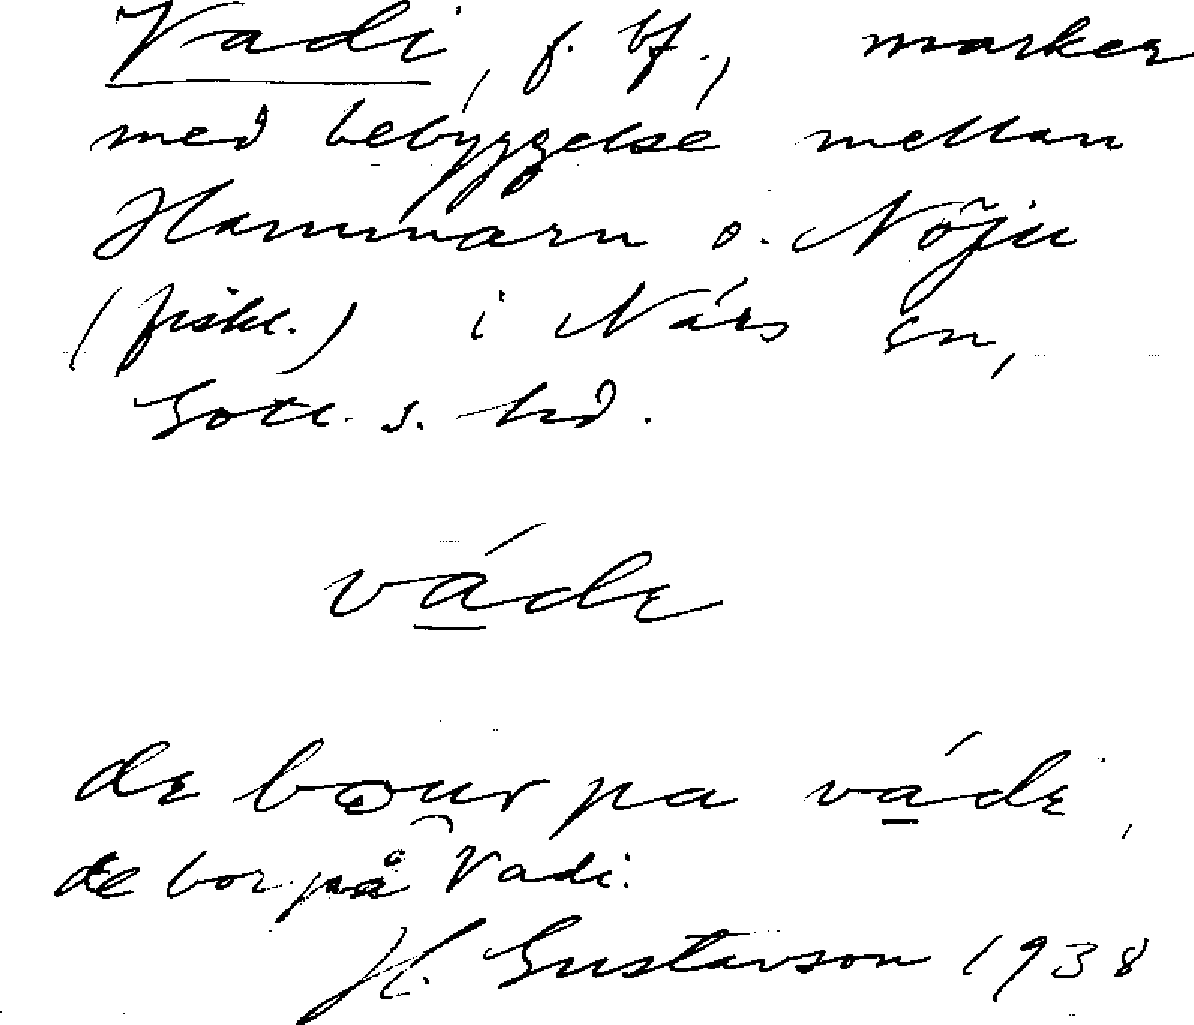 Vadi, f. bf., marker
med bebyggelse mellan
Hammarn o. Nöju
(fiskel.) i Närs sn,
Gotl. s. hd.
váde
de bour pa vádi,
de bor på Vadi.
H. Gustavson 1938